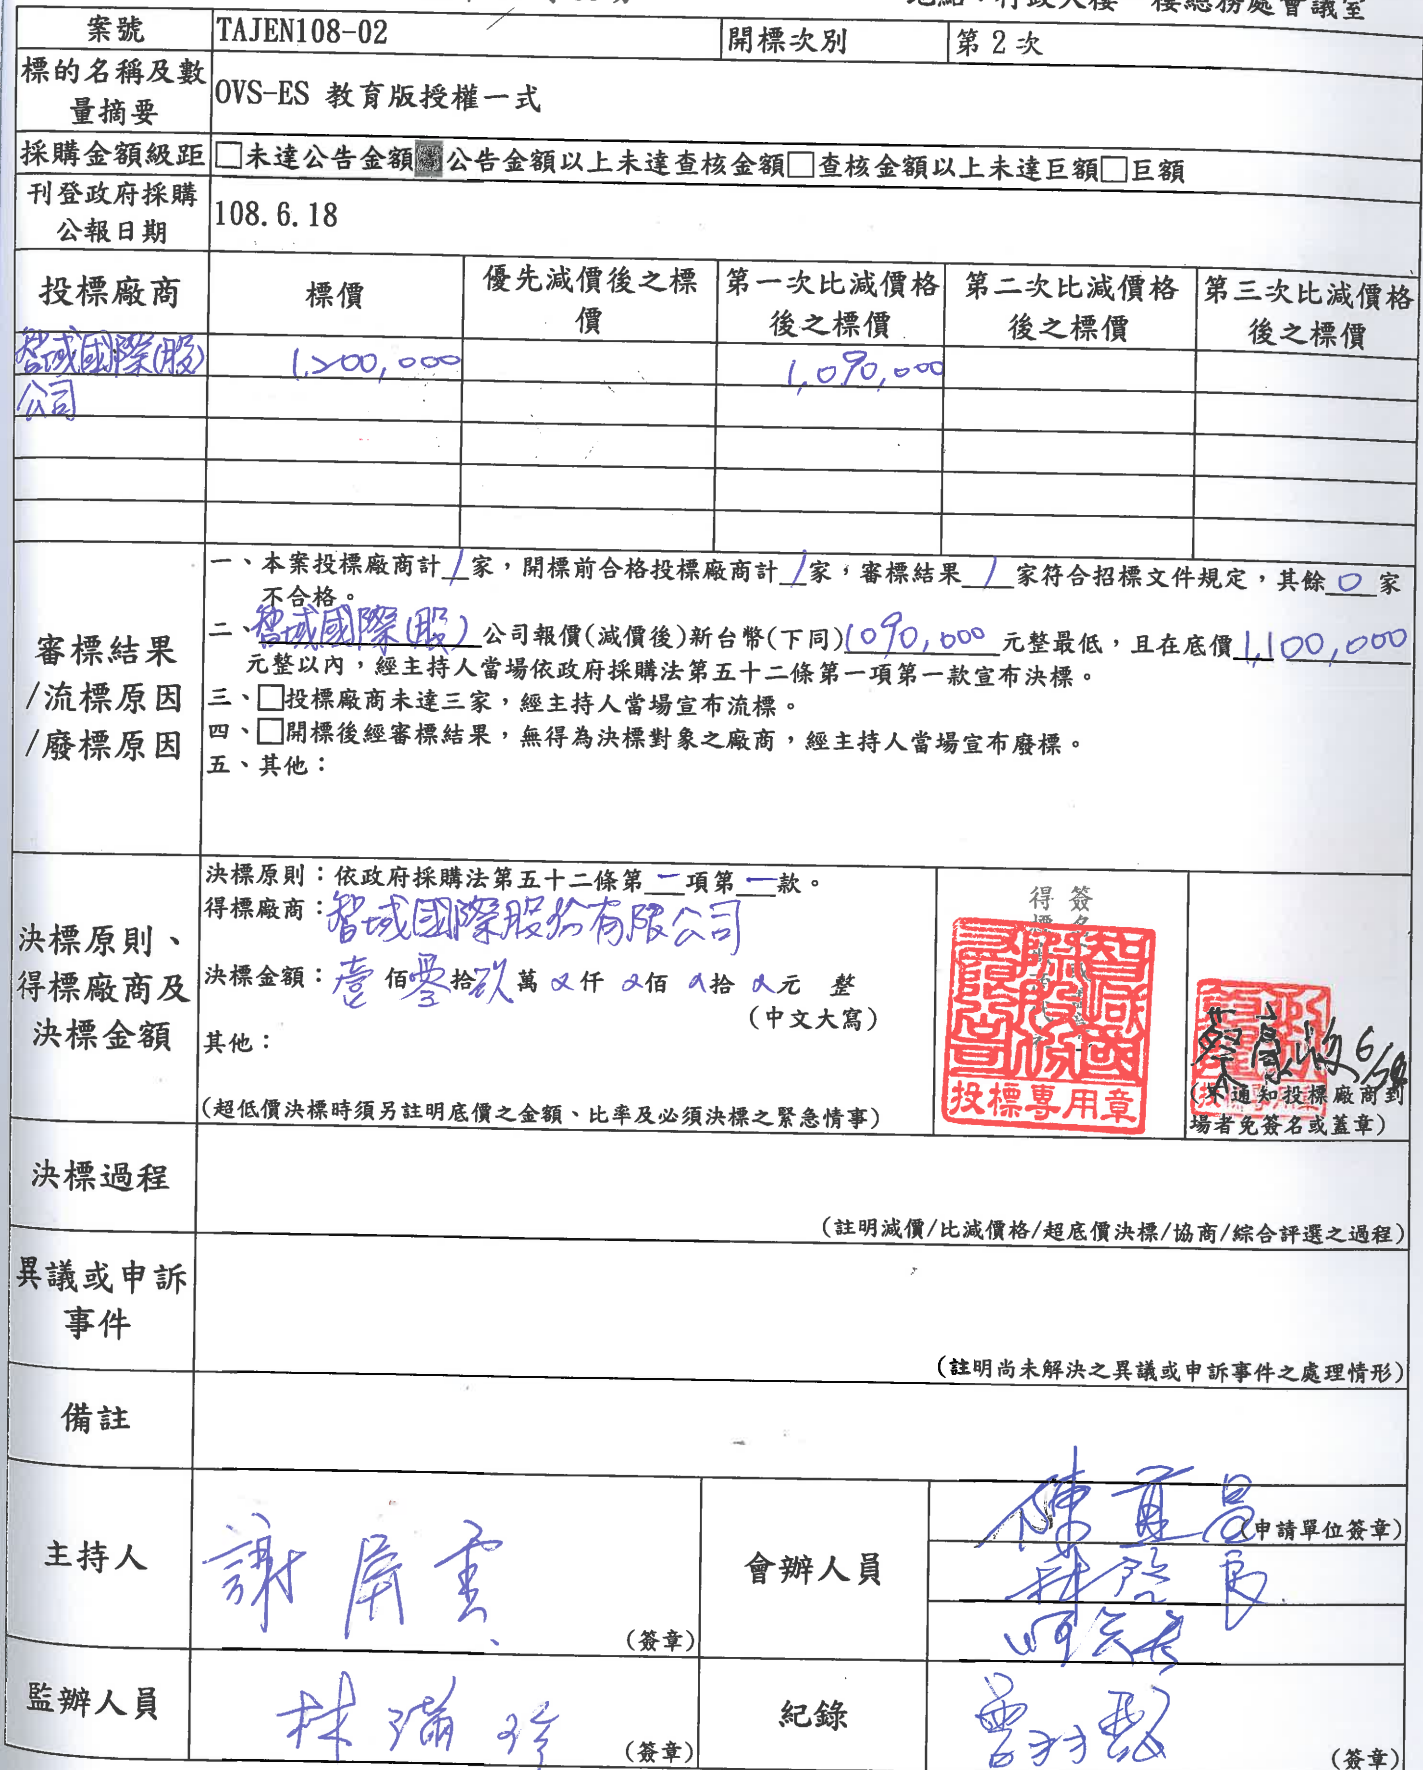 案號 TAJEN108-02 開標次別 第 2 次
標的名稱及數量摘要 OVS-ES 教育版授權一式
採購金額級距 □未達公告金額■公告金額以上未達查核金額□查核金額以上未達巨額□巨額
刊登政府採購公報日期 108.6.18
投標廠商 標價 優先減價後之標價 第一次比減價格後之標價 第二次比減價格後之標價 第三次比減價格後之標價
智域國際(股)公司 1,200,000 1,090,000
審標結果/流標原因/廢標原因
一、本案投標廠商計1家，開標前合格投標廠商計1家，審標結果1家符合招標文件規定，其餘0家
不合格。
二、智域國際(股)公司報價(減價後)新台幣(下同)1090,000元整最低，且在底價1,100,000
元整以內，經主持人當場依政府採購法第五十二條第一項第一款宣布決標。
三、□投標廠商未達三家，經主持人當場宣布流標。
四、□開標後經審標結果，無得為決標對象之廠商，經主持人當場宣布廢標。
五、其他：
決標原則、得標廠商及決標金額
決標原則：依政府採購法第五十二條第一項第一款。
得標廠商：智域國際股份有限公司
決標金額：壹佰零拾玖萬 仟 佰 拾 元 整
(中文大寫)
其他：
(超低價決標時須另註明底價之金額、比率及必須決標之緊急情事)
投標專用章
6/28
(未通知投標廠商到
場者免簽名或蓋章)
決標過程
(註明減價/比減價格/超底價決標/協商/綜合評選之過程)
異議或申訴事件
(註明尚未解決之異議或申訴事件之處理情形)
備註
主持人 謝屏雲 (簽章)
會辦人員 (申請單位簽章)
監辦人員 林滿珍 (簽章)
紀錄 (簽章)